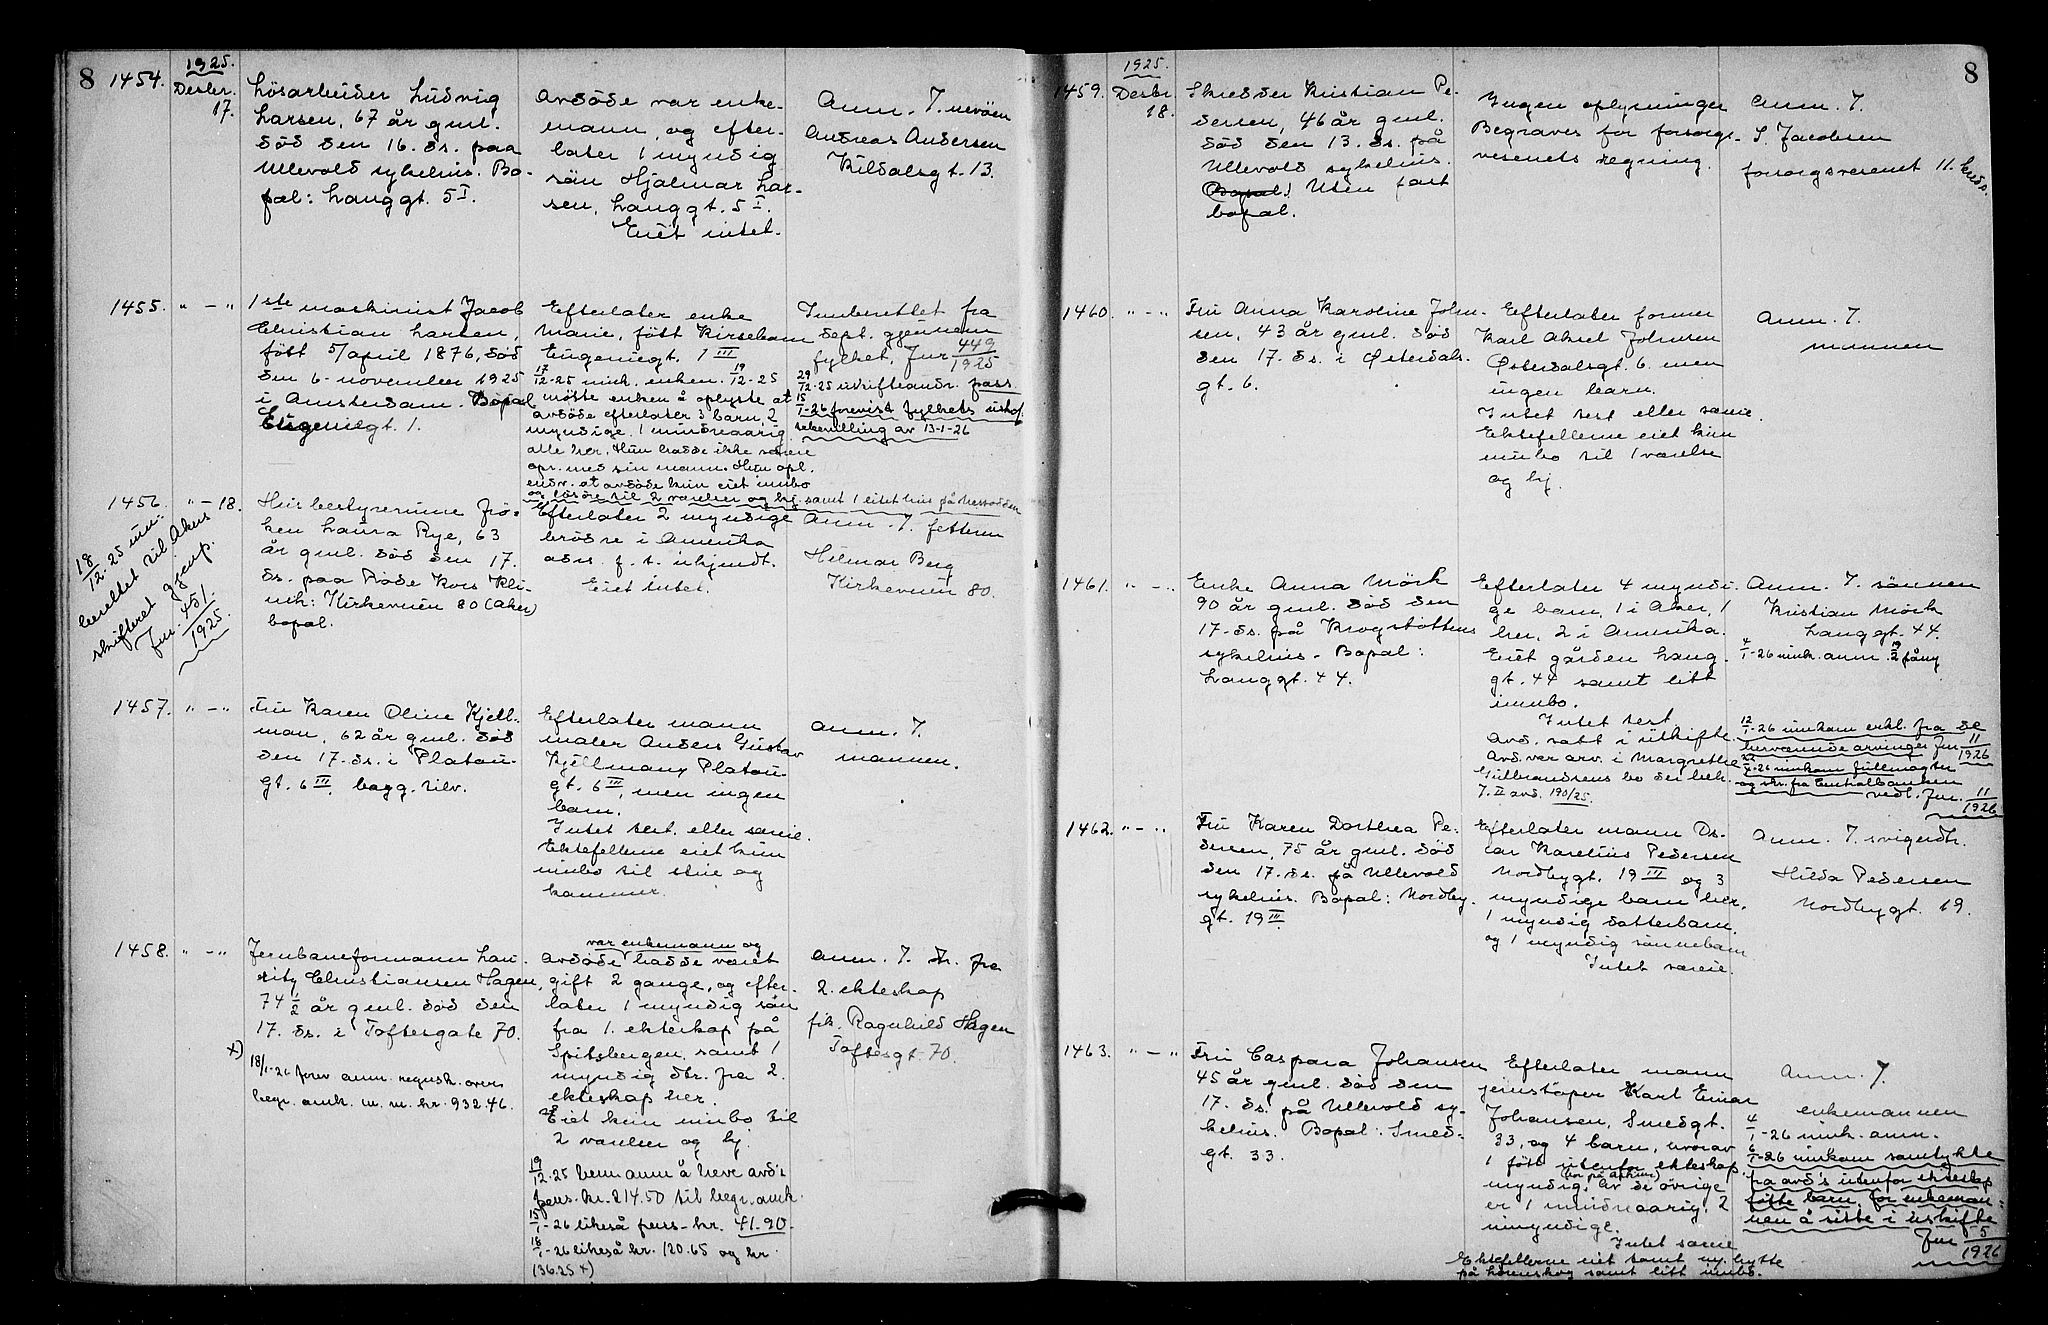 8
1925.
1454.
Desbr.
17.
Lösarbeider Ludvig
Larsen, 67 år gml.
död den 16. ds. paa
Ullevold sykehus. Bo-
pæl: Langgt. 5 I.
Avdöde var enke-
mann, og efter-
later 1 myndig
sön Hjalmar Lar-
sen, Langgt. 5 I.
Eiet intet.
Anm. J. nevöen
Andreas Andersen
Kildalsgt. 13.
1455. " — "
1ste maskinist Jacob
Christian Larsen,
fött 5/april 1876, död
den 6. november 1925
i Amsterdam. Bopæl
Eugeniegt. 1.
Efterlater enke
Marie, fött Kirsebom
Eugeniegt. 1 III
17/12-25 innk. enken. 19/12-25
mötte enken å oplyste at
avdöde efterlater 3 barn, 2
myndige, 1 mindreaarig
alle her. Hun hadde ikke særeie
opr. med sin mann. Hun opl.
endv. at avdöde kun eiet innbo
og lösöre til 2 værelser og kj. samt 1 litet hus på Nesodden
Innberettet fra
Sept. gjennem
fylket, Jnr 449/1925
29/12-25 uskifteandr. pass.
15/1-26 forevist fylkets uskif.
bevilling av 13-1-26
1456. " — 18.
Husbestyrerinne frö-
ken Laura Rye, 63
år gml. död den 17.
ds. paa Röde Kors Kli-
nik: Kirkeveien 80 (Aker)
bopæl.
18/12-25 inn-
berettet til Akers
skifteret gjenp.
Jnr. 451/1925.
Efterlater 2 myndige
brödre i Amerika
adrs. f. t. ukjendt.
Eiet intet.
Anm. J. fetteren
Hilmar Berg
Kirkeveien 80.
1457. " — "
Fru Karen Oline Kjell-
man, 62 år gml. död
den 17. ds. i Platou-
gt. 6 III, bagg. tilv.
Efterlater mann
maler Anders Gustav
Kjellmann Platou-
gt. 6 III, men ingen
barn.
Intet test. eller særeie.
Ektefellerne eiet kun
innbo til stue og
kammer.
Anm. J.
mannen.
1458. " — "
Jernbaneformann Lau-
ritz Christiansen Hagen,
74 1/2 år gml. död den
17. ds. i Toftesgate 70.
x)
18/1-26 forev anm. regnsk. over
begr. omk. m. m. kr. 932.46.
var enkemann og
Avdöde hadde været
gift 2 gange, og efter-
later 1 myndig sön
fra 1. ekteskap på
Spitsbergen, samt 1
myndig dtr. fra 2.
ekteskap her.
Eiet kun innbo til
2 værelser og kj.
19/12-25 bem anm å heve avd's
pens. kr. 214.50 til begr. omk.
15/1-26 likeså pens-kr. 41-90-
18/1-26 likeså kr. 120.65 og kr
136.25 x)
Anm. J. dtr. fra
2. ekteskap
frk. Ragnhild Hagen
Toftesgt. 70.
8
1925.
1459.
Desbr
18.
Skredder Kristian Pe-
dersen, 46 år gml.
död den 13. ds. på
Ullevold sykehus.
Uten fast
bopæl.
Ingen oplysninger
Begraves for forsorgs-
vesenets regning.
Anm. J.
S. Jacobsen
forsorgsvesenet 11. krds.
1460. " — "
Fru Anna Karoline John-
sen, 43 år gml. död
den 17. ds. i Österdals-
gt. 6.
Efterlater former
Karl Aksel Johnsen
Österdalsgt. 6. men
ingen barn.
Intet test eller særeie.
Ektefellerne eiet kun
innbo til 1 værelse
og kj.
Anm. J.
mannen
1461. " — "
Enke Anna Mörk
90 år gml. död den
17. ds. på Krogstöttens
sykehus. Bopæl:
Langgt. 44.
Efterlater 4 myndi-
ge barn, 1 i Aker, 1
her, 2 i Amerika.
Eiet gården Lang-
gt. 44 samt litt
innbo.
Intet test
Avd. satt i uskifte.
Avd. var arv. i Margrethe
Gulbrandsens bo der beh.
J. II avd. 190/25.
Anm. J. sönnen
Kristian Mörk
Langgt. 44.
4/1-26 innk. anm. 19/2 påny
12/1-26 innkom erkl. fra de
herværende arvinger Jnr 11/1926
innkom fullmagter
og skr. fra Centralbanken
vedl. Jnr. 11/1926
1462. " — "
Fru Karen Dorthea Pe-
dersen, 75 år gml. död
den 17. ds. på Ullevold
sykehus. Bopæl: Nordby-
gt. 19 III.
Efterlater mann Os-
car Karelius Pedersen
Nordbygt. 19 III og 3
myndige barn her,
1 myndig datterbarn
og 1 myndig sönnebarn
Intet særeie.
Anm. J. svigerdtr.
Hilda Pedersen
Nordbygt. 19.
1463. " — "
Fru Caspara Johansen
45 år gml. död den
17. ds. på Ullevold sy-
kehus. Bopæl: Smed-
gt. 33.
Efterlater mann
jernstöper Karl Einar
Johansen, Smedgt.
33, og 4 barn, hvorav
1 fött utenfor ekteskap
myndig. Av de övrige
er 1 mindreaarig, 2
umyndige.
Intet særeie
Ektefellerne eiet samt ny hytte
på Lörenskog samt litt innbo.
Anm. J.
enkemannen
4/1-26 innk. anm.
6/1-26 innkom samtykke
fra avd's utenfor ekteskap
födte barn for enkeman-
nen å sitte i uskifte
Jnr 5/1926